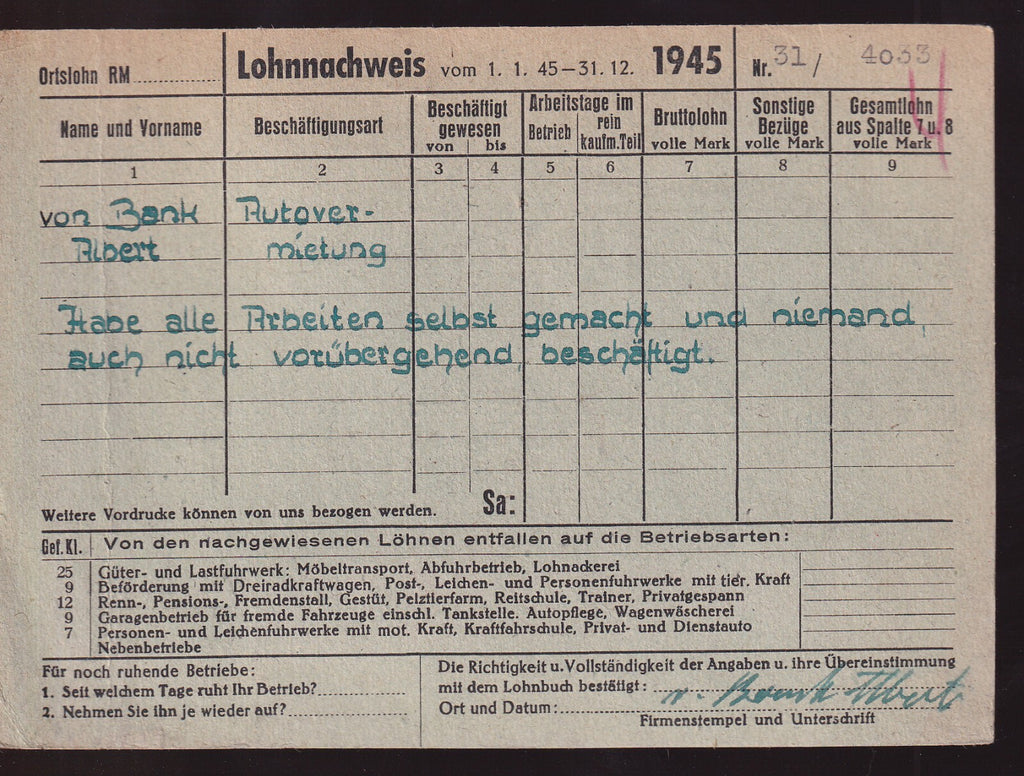 Ortslohn RM
Lohnnachweis vom 1. 1. 45–31. 12. 1945
Nr. 31/ 4033
Name und Vorname
Beschäftigungsart
Beschäftigt gewesen
von bis
Arbeitstage im
Betrieb
rein kaufm. Teil
Bruttolohn
volle Mark
Sonstige Bezüge
volle Mark
Gesamtlohn
aus Spalte 7 u. 8
volle Mark
1 2 3 4 5 6 7 8 9
von Bank Autover-
Albert mietung
Habe alle Arbeiten selbst gemacht und niemand,
auch nicht vorübergehend, beschäftigt.
Weitere Vordrucke können von uns bezogen werden.
Sa:
Gef. Kl. Von den nachgewiesenen Löhnen entfallen auf die Betriebsarten:
25 Güter- und Lastfuhrwerk: Möbeltransport, Abfuhrbetrieb, Lohnackerei
9 Beförderung mit Dreiradkraftwagen, Post-, Leichen- und Personenfuhrwerke mit tier. Kraft
12 Renn-, Pensions-, Fremdenstall, Gestüt, Pelztierfarm, Reitschule, Trainer, Privatgespann
9 Garagenbetrieb für fremde Fahrzeuge einschl. Tankstelle. Autopflege, Wagenwäscherei
7 Personen- und Leichenfuhrwerke mit mot. Kraft, Kraftfahrschule, Privat- und Dienstauto
Nebenbetriebe
Für noch ruhende Betriebe:
1. Seit welchem Tage ruht Ihr Betrieb?
2. Nehmen Sie ihn je wieder auf?
Die Richtigkeit u. Vollständigkeit der Angaben u. ihre Übereinstimmung
mit dem Lohnbuch bestätigt: v. Bank Albert
Ort und Datum:
Firmenstempel und Unterschrift